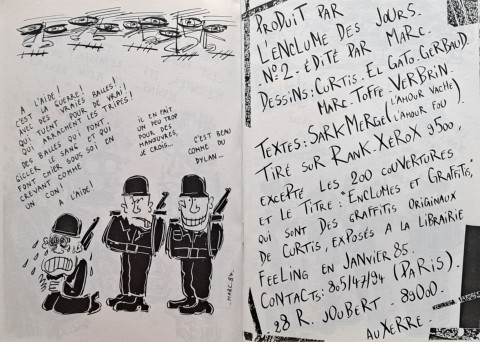 A L'AIDE!
C'EST LA GUERRE!
AVEC DES VRAIES BALLES!
QUI TUENT POUR DE VRAI!
QUI ARRACHENT LES TRIPES!
DES BALLES QUI FONT
GICLER LE SANG ET QUI
FONT CHIER SOUS SOI EN
CREVANT COMME
UN CON!
A L'AIDE!
IL EN FAIT
UN PEU TROP
POUR DES
MANŒUVRES,
JE CROIS...
C'EST BEAU
COMME DU
DYLAN...
MARC.84.
PRODUIT PAR
L'ENCLUME DES JOURS.
N°2. ÉDITÉ PAR MARC.
DESSINS: CURTIS. EL GATO. GERBAUD.
MARC. TOFFE. VERBRIN.
TEXTES: SARK MERGE (L'AMOUR VACHE)
(L'AMOUR FOU)
TIRÉ SUR RANK. XEROX 9500,
EXCEPTÉ LES 200 COUVERTURES
ET LE TITRE: "ENCLUMES ET GRAFFITIS",
QUI SONT DES GRAFFITIS ORIGINAUX
DE CURTIS, EXPOSÉS A LA LIBRAIRIE
FEELING EN JANVIER 85.
CONTACTS: 805/47/94 (PARIS).
28 R. JOUBERT - 89000.
AUXERRE.